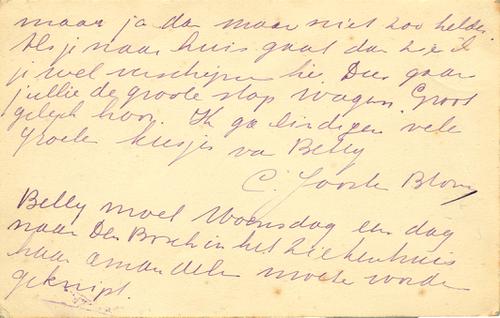 maar ja dan maar niet zoo helder.
Als je naar huis gaat dan zie ik
je wel verschijnen hé. Dus gaan
jullie de groote stap wagen. Groot
gelijk hoor. Ik ga eindigen vele
Groeten kusjes van Betty
C. Joosten Blom
Betty moet Woensdag een dag
naar Den Bosch in het Ziekenhuis
haar amandelen moete worden
geknipt.